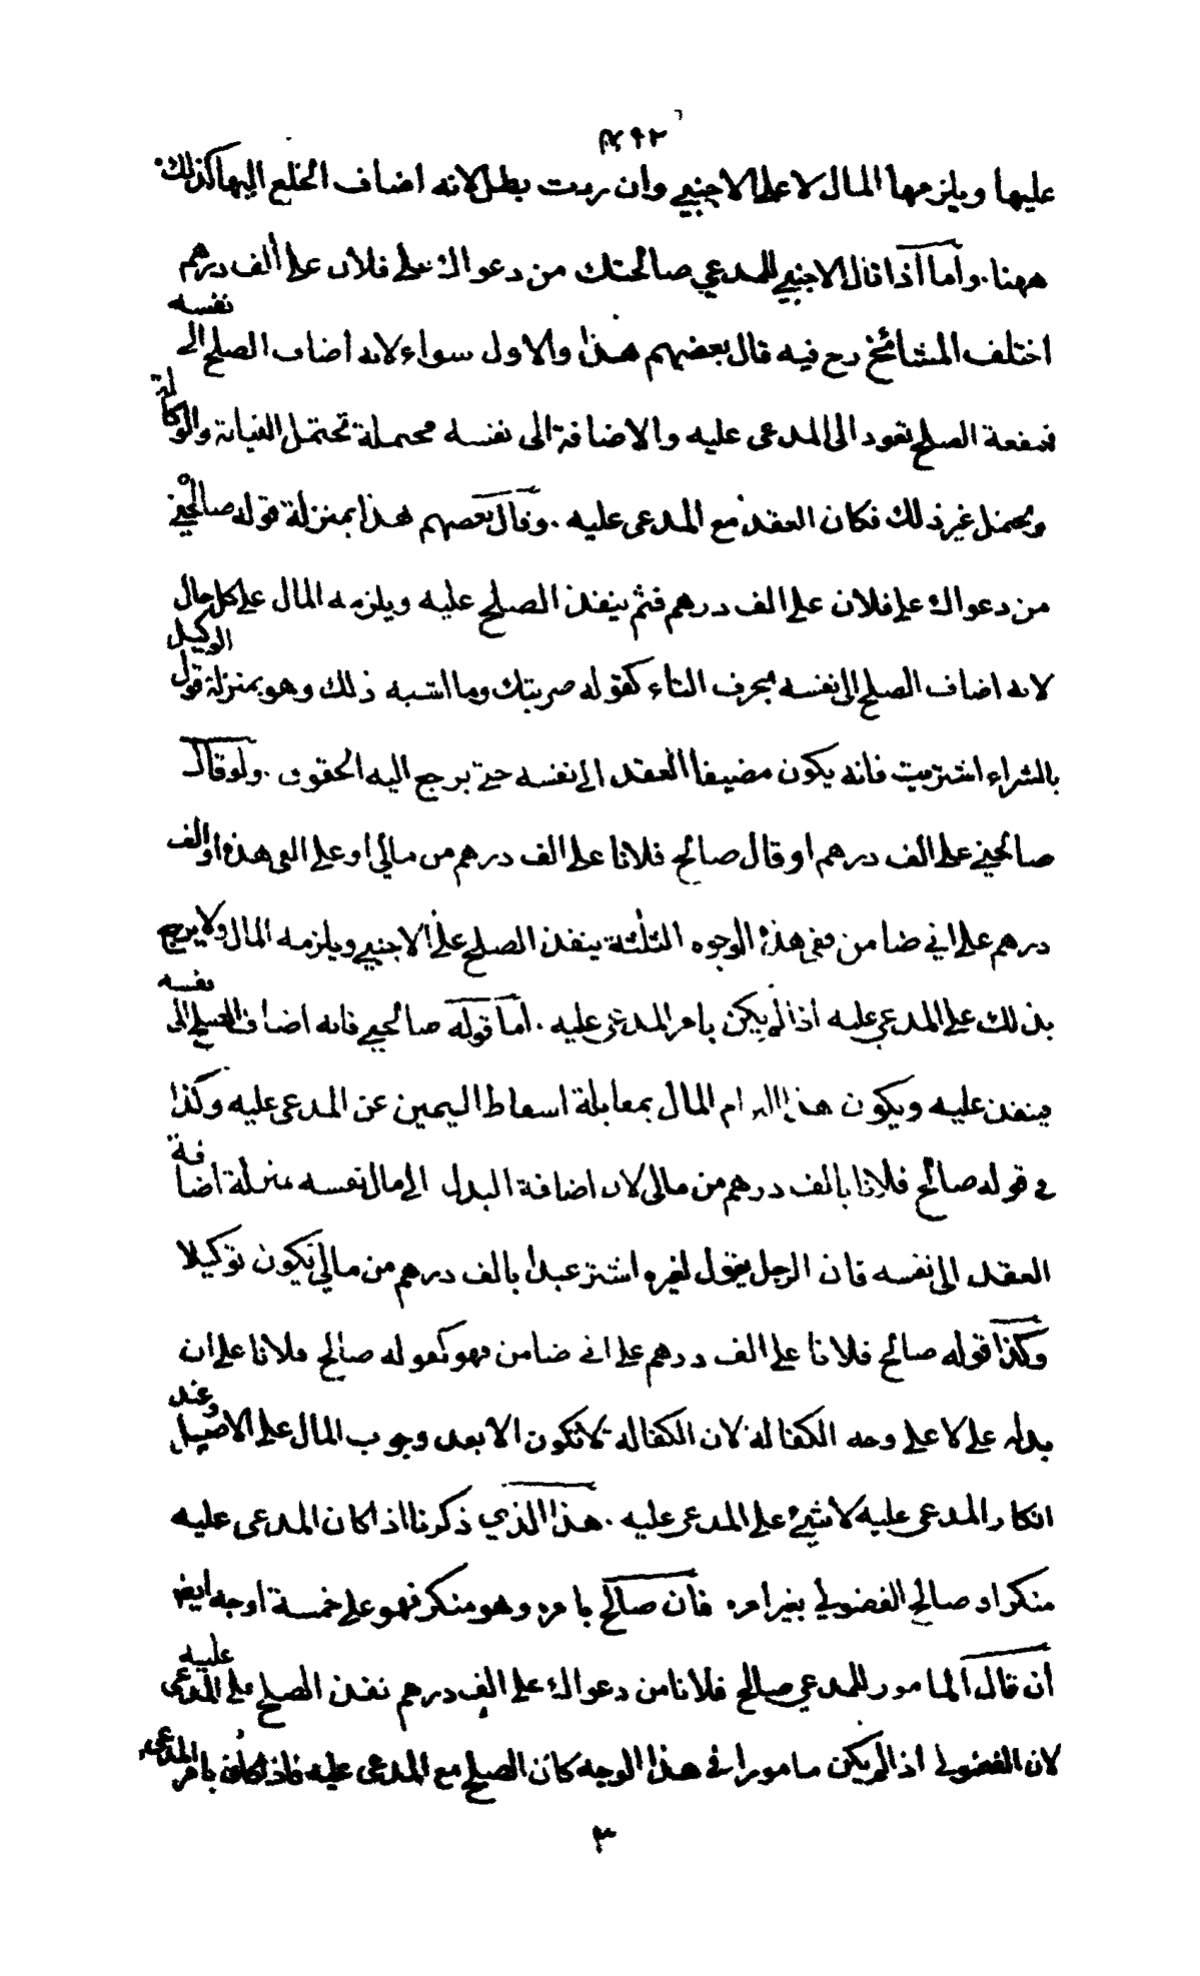 عليها ويلزمها المال لا على الاجنبي وان ردت بطل لانه اضاف الخلع اليها كذلك
ههنا . واما اذا قال الاجنبي للمدعي صالحتك من دعواك على فلان على ألف درهم
اختلف المشائخ رح فيه قال بعضهم هذا والاول سواء لانه اضاف الصلح الى نفسه
فمنفعة الصلح تعود الى المدعى عليه والاضافة الى نفسه محتملة تحتمل النيابة والوكالة
وتحتمل غير ذلك فكان العقد مع المدعى عليه . وقال بعضهم هذا بمنزلة قوله صالحني
من دعواك على فلان على الف درهم فثم ينفذ الصلح عليه ويلزمه المال على كل حال
لانه اضاف الصلح الى نفسه بحرف التاء كقوله ضربتك وما اشبه ذلك وهو بمنزلة قول الوكيل
بالشراء اشتريت فانه يكون مضيفا العقد الى نفسه حتى يرجع اليه الحقوق . ولو قال
صالحني على الف درهم او قال صالح فلانا على الف درهم من مالي او على الفي هذه او الف
درهم على اني ضامن ففي هذه الوجوه الثلثة ينفذ الصلح على الاجنبي ويلزمه المال ولا يرجع
بذلك على المدعى عليه اذا لم يكن بامر المدعى عليه . اما قوله صالحني فانه اضاف الصلح الى نفسه
فينفذ عليه ويكون هذا التزام المال بمقابلة اسقاط اليمين عن المدعى عليه وكذا
في قوله صالح فلانا بالف درهم من مالي لان اضافة البدل الى مال نفسه بمنزلة اضافة
العقد الى نفسه فان الرجل يقول لغيره اشتر عبدا بالف درهم من مالي يكون توكيلا
وكذا قوله صالح فلانا على الف درهم على اني ضامن فهو كقوله صالح فلانا على ان
بدله علي لا على وجه الكفالة لان الكفالة لا تكون الا بعد وجوب المال على الاصيل وعند
انكار المدعى عليه لا شيء على المدعى عليه . هذا الذي ذكرنا اذا كان المدعى عليه
منكرا وصالح الفضولي بغير امره فان صالح بامره وهو منكر فهو على خمسة اوجه ايضا
ان قال المامور للمدعي صالح فلانا من دعواك على الف درهم نفذ الصلح على المدعى عليه
لان الفضولي اذا لم يكن مامورا في هذا الوجه كان الصلح مع المدعى عليه فاذا كان بامر المدعى
٣